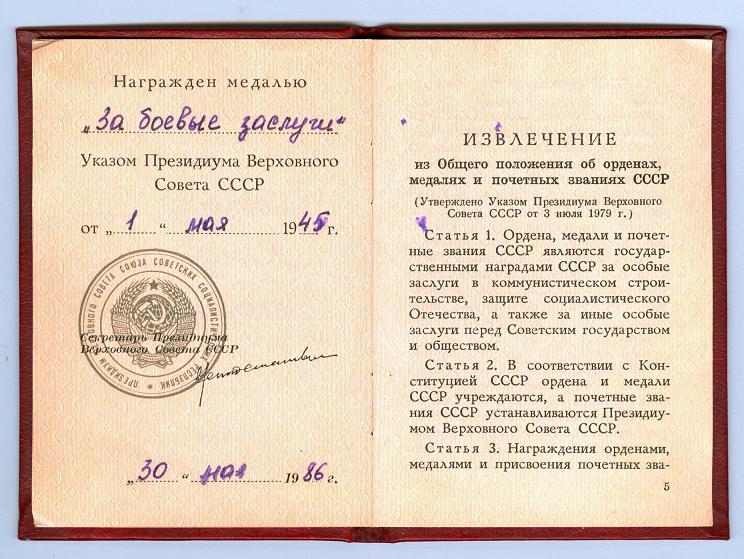 Награжден медалью
„За боевые заслуги“
Указом Президиума Верховного
Совета СССР
от „1“ мая 1945 г.
ПРЕЗИДИУМ ВЕРХОВНОГО СОВЕТА СОЮЗА СОВЕТСКИХ СОЦИАЛИСТИЧЕСКИХ РЕСПУБЛИК
Секретарь Президиума
Верховного Совета СССР
„30“ мая 1986 г.
ИЗВЛЕЧЕНИЕ
из Общего положения об орденах,
медалях и почетных званиях СССР
(Утверждено Указом Президиума Верховного
Совета СССР от 3 июля 1979 г.)
Статья 1. Ордена, медали и почет-
ные звания СССР являются государ-
ственными наградами СССР за особые
заслуги в коммунистическом строи-
тельстве, защите социалистического
Отечества, а также за иные особые
заслуги перед Советским государством
и обществом.
Статья 2. В соответствии с Кон-
ституцией СССР ордена и медали
СССР учреждаются, а почетные зва-
ния СССР устанавливаются Президиу-
мом Верховного Совета СССР.
Статья 3. Награждения орденами,
медалями и присвоения почетных зва-
5